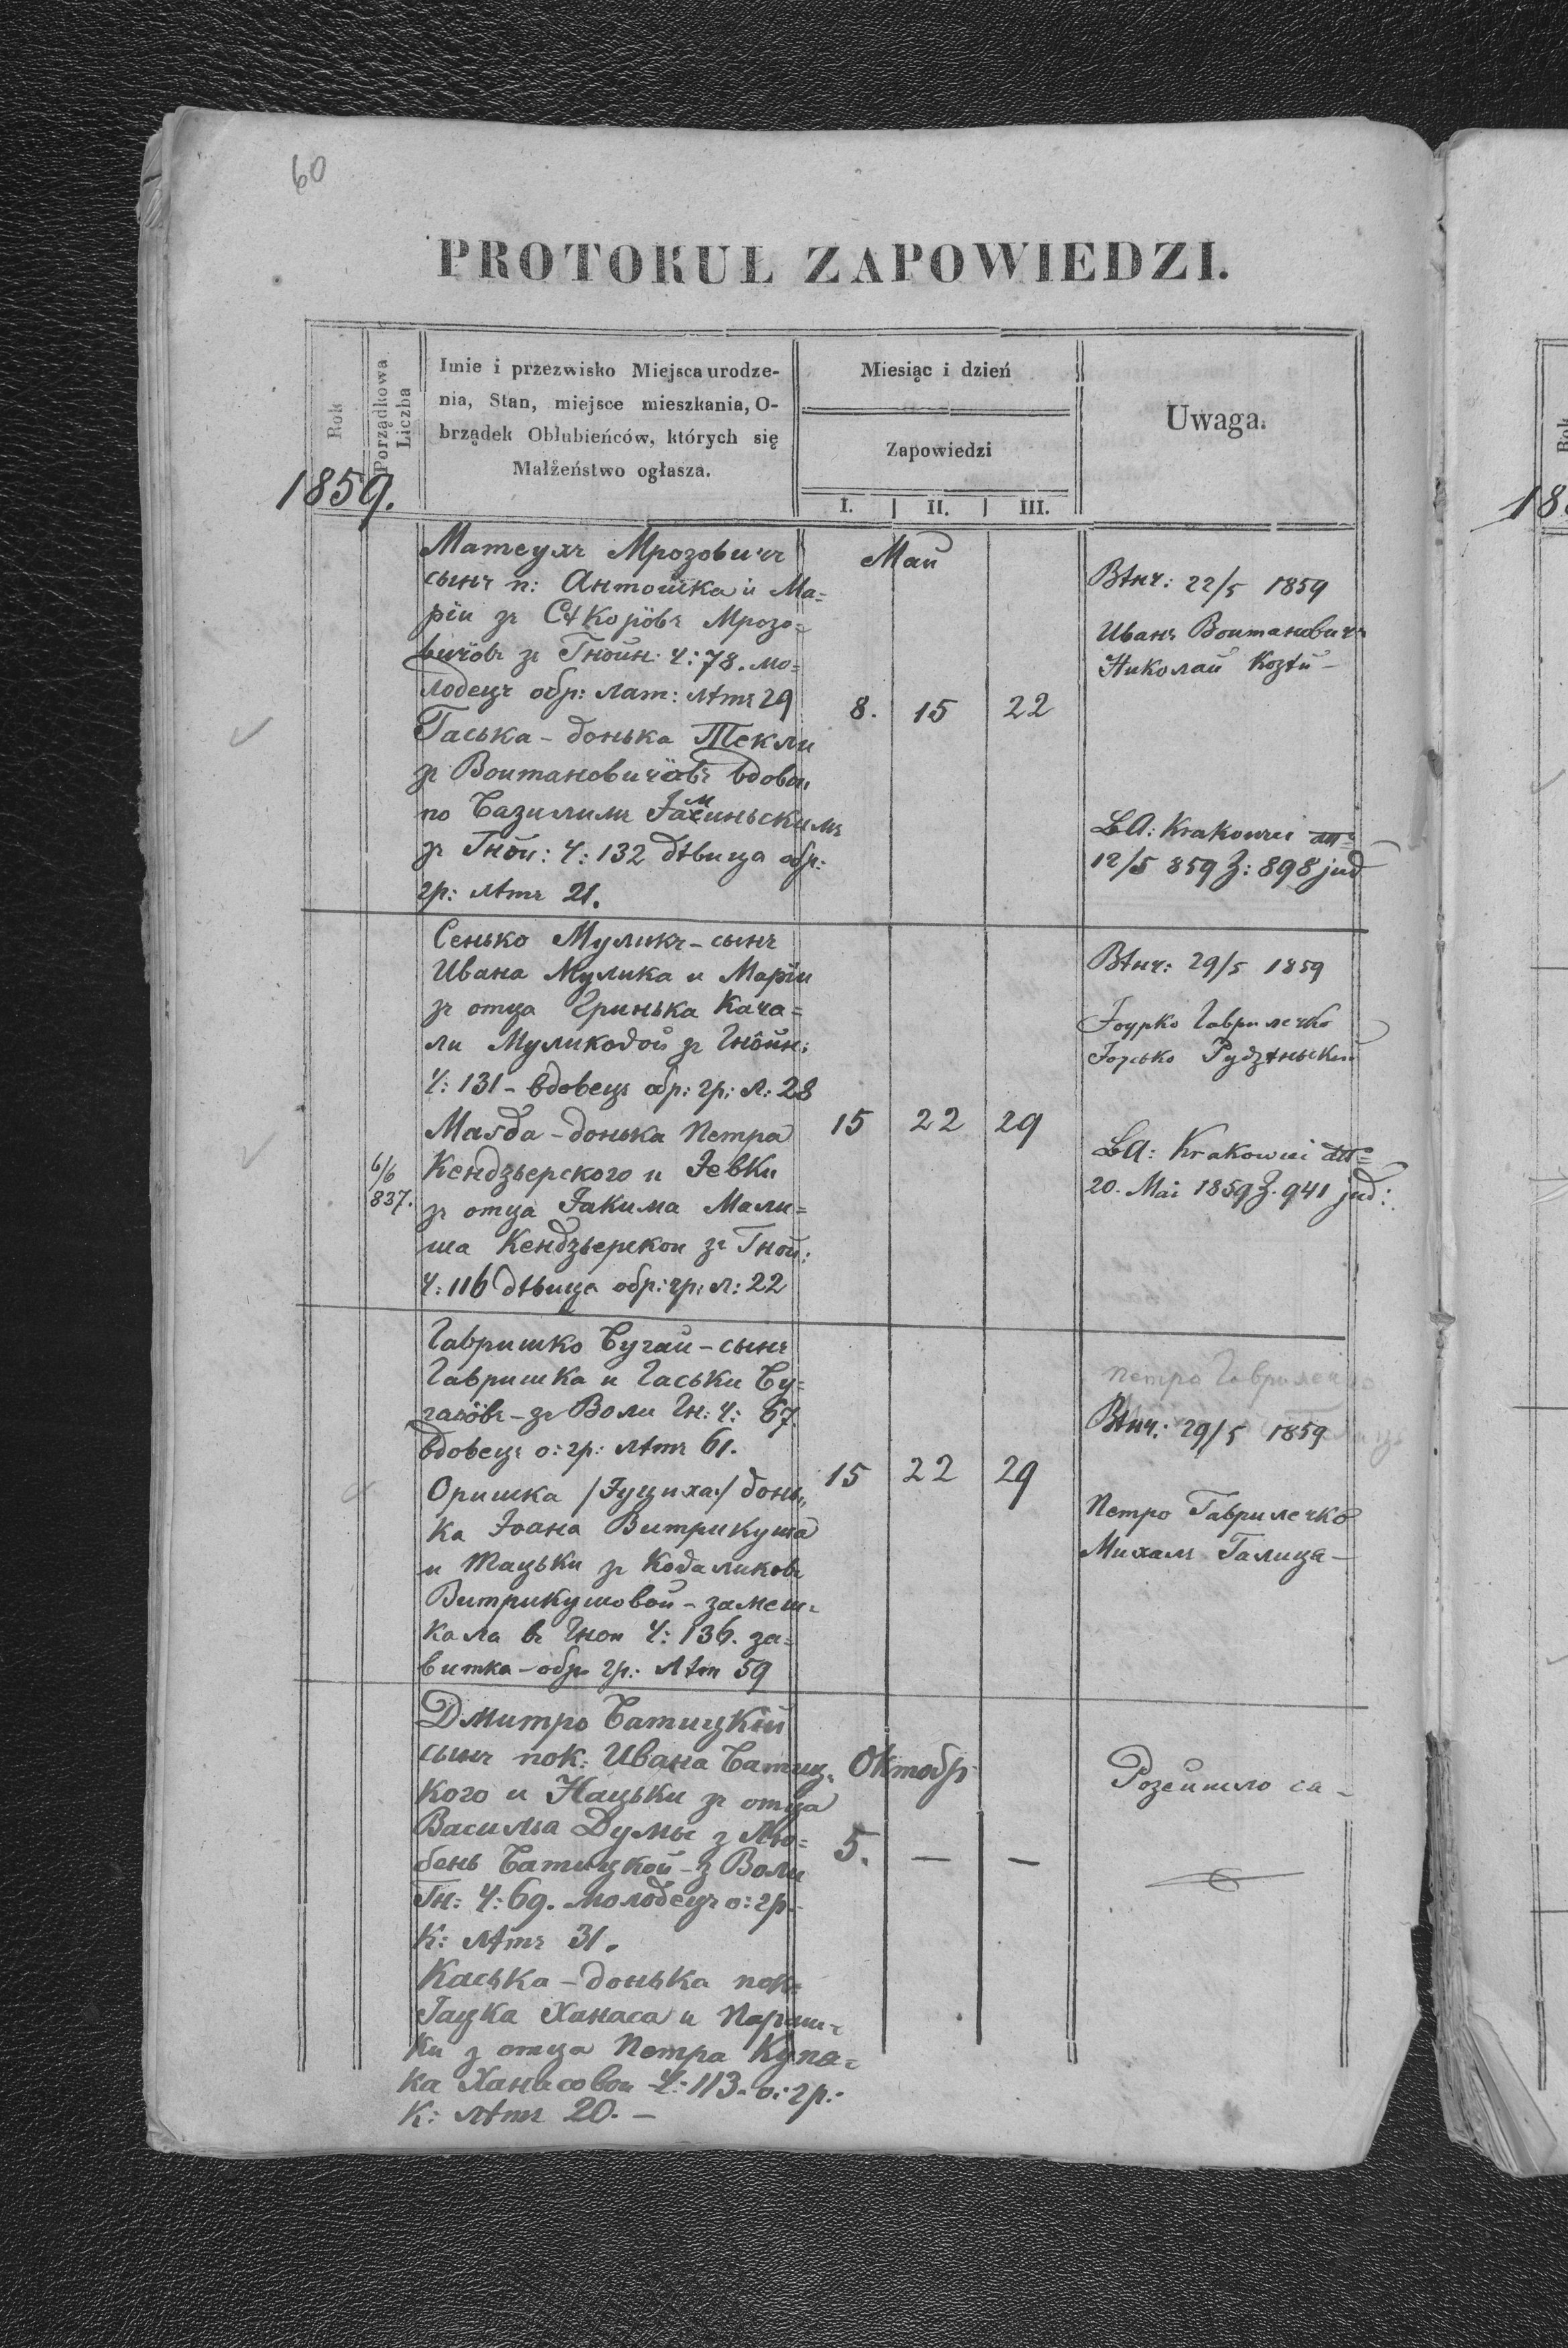 60
PROTOKUŁ ZAPOWIEDZI.
Rok
Porządkowa Liczba
Imie i przezwisko Miejsca urodze-
nia, Stan, miejsce mieszkania, O-
brządek Oblubieńców, których się
Małżeństwo ogłasza.
Miesiąc i dzień
Zapowiedzi
I. II. III.
Uwaga.
1859.
Матеухъ Мрозовичъ
сынъ п: Антошка и Ма=
ріи зъ Мрозо=
вичôвъ зъ Гноин: Ч: 78. мо=
лодецъ обр: лат: лѣтъ 29
Гаська - донька Текли
зъ Воитановичôвъ вдова
по Базилимъ
зъ Гнои: Ч: 132 дѣвица обр:
гр: лѣтъ 21.
Маи
8. 15 22
Вѣнч: 22/5 1859
Иванъ Воитановичъ
Николаи Козѣй -
BA: Krakowici
12/5 859 Z: 898 jud
Сенько Муликъ - сынъ
Ивана Мулика и Маріи
зъ отца Гринька Кача=
ли Муликовои зъ Гнôин:
Ч: 131 - вдовецъ обр: гр: л: 28
Магда - донька Петра
Кендзьерского и Іевки
зъ отца Іакима Мали=
ша Кендзьерскои зъ Гнои:
Ч: 116 дѣвица обр: гр: л: 22
6/6
837.
15 22 29
Вѣнч: 29/5 1859
Іоурко Гаврилечко
Рудзѣньскій
BA: Krakowici
20. Mai 1859 Z. 941 jud:
Гавришко Бугаи - сынъ
Гавришка и Гаськи Бу=
гаёвъ - зъ Воли Гн: Ч: 67.
вдовецъ о: гр: лѣтъ 61.
Оришка /Іуциха:/ донь=
ка Іоана Витрикуша
и Тацьки зъ Кодаликовъ
Витрикушовои - замеш=
кала въ Гнои Ч: 136. за=
витка - обр гр: лѣт 59
15 22 29
Петро Гаврилечко
Вѣнч: 29/5 1859
Петро Гаврилечко
Михалъ Галица -
Дмитро Батицкій
сынъ пок: Ивана Батиц=
кого и Нацьки зъ отца
Васильа Думы з Лю=
бень Батицкой - з Воли
Гн: Ч: 69. молодецъ о: гр:
К: лѣтъ 31.
Каська - донька пок:
Гацка Ханаса и Параш=
ки з отца Петра Купа=
ка Ханасовои Ч: 113. о: гр:
К: лѣтъ 20. -
Октобр
5. — —
Розейшло са -